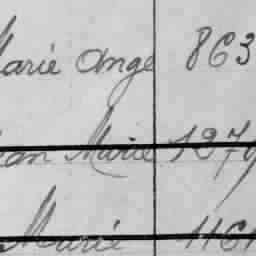 Marie Ange 863
Jean Marie 1279
Marie 1161